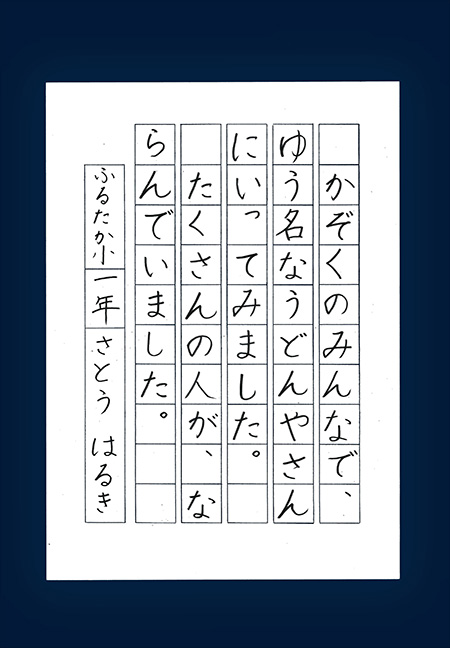 かぞくのみんなで、
ゆう名なうどんやさん
にいってみました。
　たくさんの人が、な
らんでいました。
ふるたか小 一年 さとう はるき